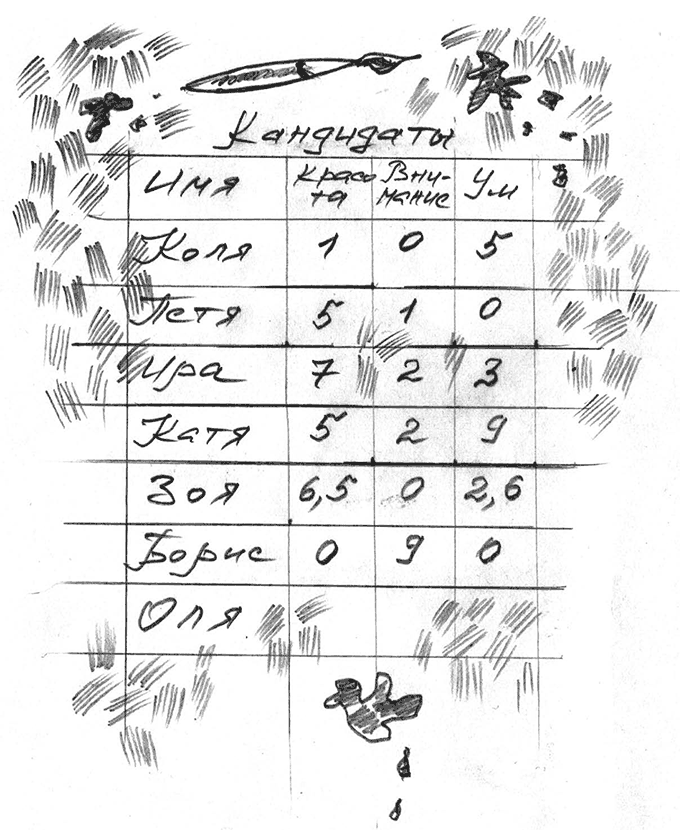 Кандидаты
Имя Красо Вни- Ум
та мание
Коля 1 0 5
Петя 5 1 0
Ира 7 2 3
Катя 5 2 9
Зоя 6,5 0 2,6
Борис 0 9 0
Оля